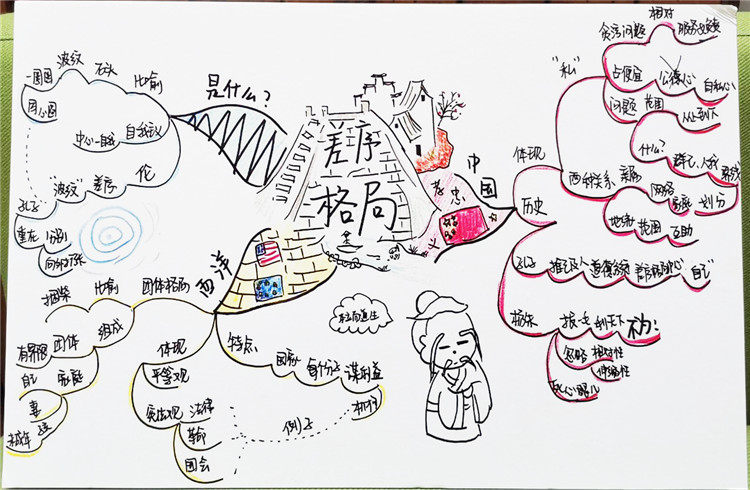 差序
格局
是什么？
比喻
石头
波纹
一圈圈
同心圆
自我主义
中心一自我
伦
差序
"波纹"
孔子
重在
分别
向外推
中国
孝
忠
义
体现
"私"
贪污问题
相对
服务
占便宜
公德心
自私心
问题
范围
从上到下
什么？
群己、人我
界线
划分
历史
两种关系
亲属
网络
家庭
地缘
范围
互助
孔子
推己及人
道德
中心
自己
杨朱
拔一毛
利天下
不为：
忽略
相对性
伸缩性
死心眼儿
西洋
团体格局
比喻
捆柴
组成
团体
有界限
家庭
自己
妻
越洋
特点
团对
身分
谋利益
机构
体现
平等观
宪法观
法律
革命
国会
例子